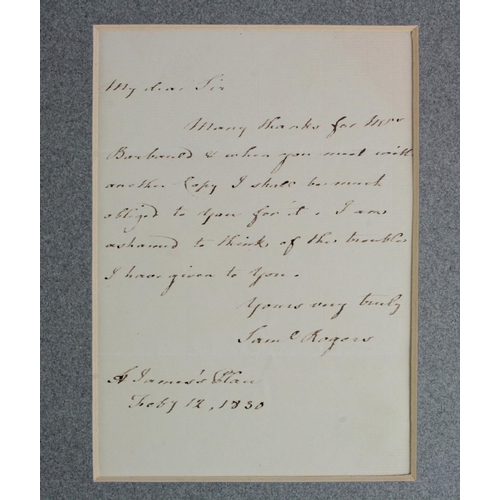 My dear Sir
Many thanks for Mrs
Barbauld & when you meet with
another Copy I shall be much
obliged to you for it. I am
ashamed to think of the trouble
I have given to you.
Yours very truly
Saml Rogers
St James's Place
Feby 12, 1830